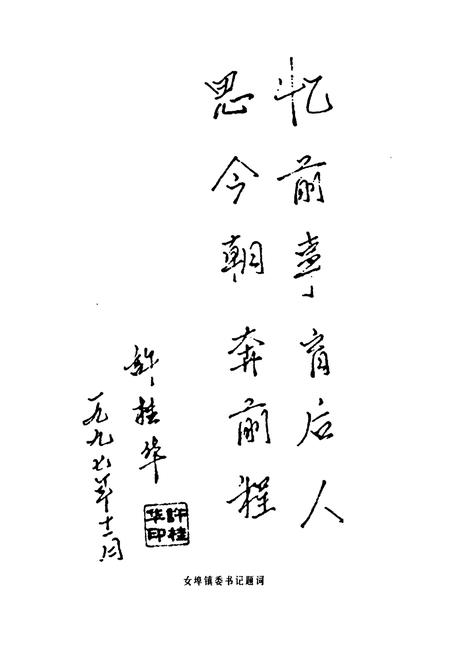 忆前事育后人
思今朝奔前程
许桂华
一九九七年十一月
許桂
华印
女埠镇委书记题词